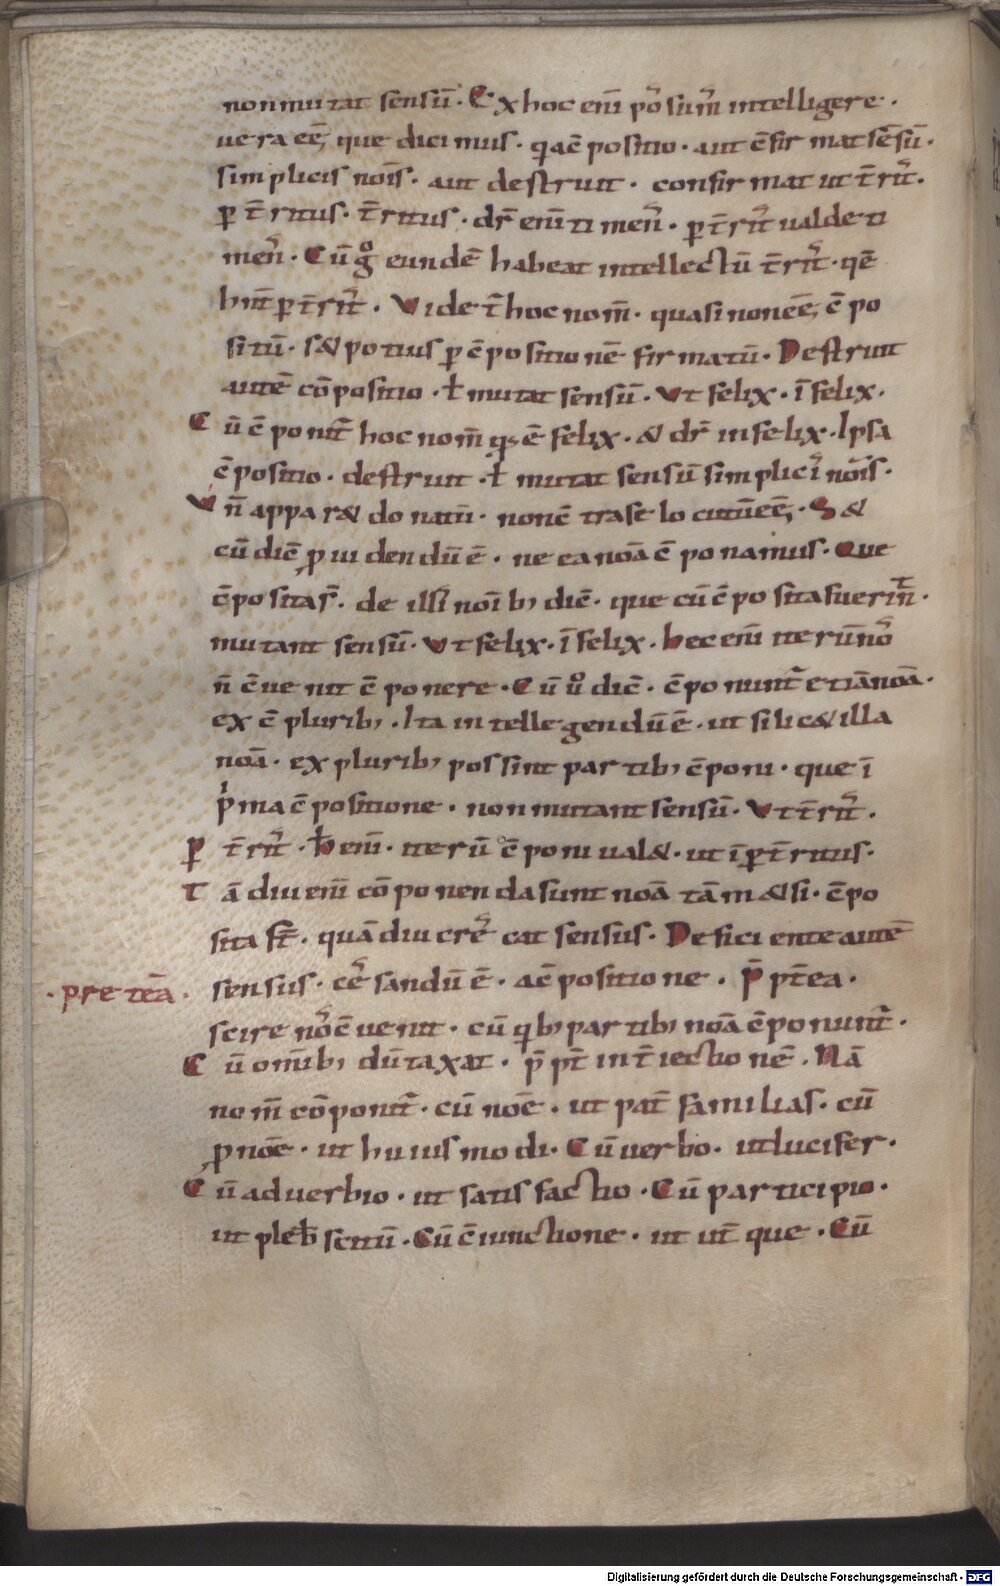 non mutat sensū. Ex hoc enī pōsumˀ intelligere.
uera eē, que dicimus. q̄a c̄positio. aut c̄firmat sēsū.
simplicis nōis. aut destruit. confirmat ut t̄ritˀ.
ꝑt̄ritus. t̄ritus. dr̄ enī timenˀ. ꝑt̄ritˀ ualde ti
menˀ. Cū gͦ eundē habeat intellectū t̄ritˀ. quē
hnt̄ ꝑt̄ritˀ. Videt̄ hoc nom̄. quasi non eē, c̄po
sitū. s& potius ꝑ c̄positionē firmatū. Destruit
autē cōpositio. ł mutat sensū. Vt felix. īfelix.
Cū c̄ponit̄ hoc nom̄ qd ē felix. & dr̄ infelix. Ipsa
c̄positio. destruit. ł mutat sensū simplicīˀ nōis.
Vn̄ appar& donatū. non c̄tra se locutū eē,. S&
cū dic̄ ꝓuidendū ē. ne ea noā c̄ponamus. Que
c̄posita s̄. de illis noīb; dic̄. que cū c̄posita fuerint̄.
mutant sensū. Vt felix. īfelix. Hec enī iterū nōˀ
n̄ c̄uenit c̄ponere. Cū uͦ dic̄. c̄ponunt̄ etiā noā.
ex c̄plurib;. Ita intellegendū ē. ut silic& illa
noā. ex plurib; possint partib; c̄poni. que ī
pⁱma c̄positione. non mutant sensū. Vt t̄ritˀ.
ꝑt̄ritˀ. H̄ enī. iterū c̄poni ual&. ut īꝑt̄ritus.
Tādiu enī cōponenda sunt noā tām &si. c̄po
sita st̄. quādiu crēˀcat sensus. Deficiente autē
sensus. cēˀsandū ē. a c̄positione. P̄pt̄ea.
.pretēa.
scire nōˀ c̄uenit. cū qⁱb; partib; noā c̄ponunt̄.
Cū om̄ib; dūtaxat. p̄pt̄ int̄iectionē. Nā
nom̄ cōponit̄. cū noē. ut pat̄ familias. cū
ꝓnoē. ut huiusmodi. Cū uerbo. ut lucifer.
Cū aduerbio. ut satisfactio. Cū participio.
ut plebiscitū. Cū c̄iunctione. ut ut̄que. Cū
Digitalisierung gefördert durch die Deutsche Forschungsgemeinschaft - DFG